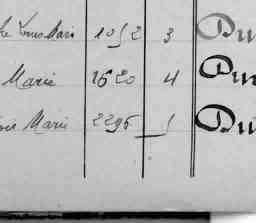 Louis Marie 1052 3 Du
Marie 1620 4 Du
Marie 2296 1 Du